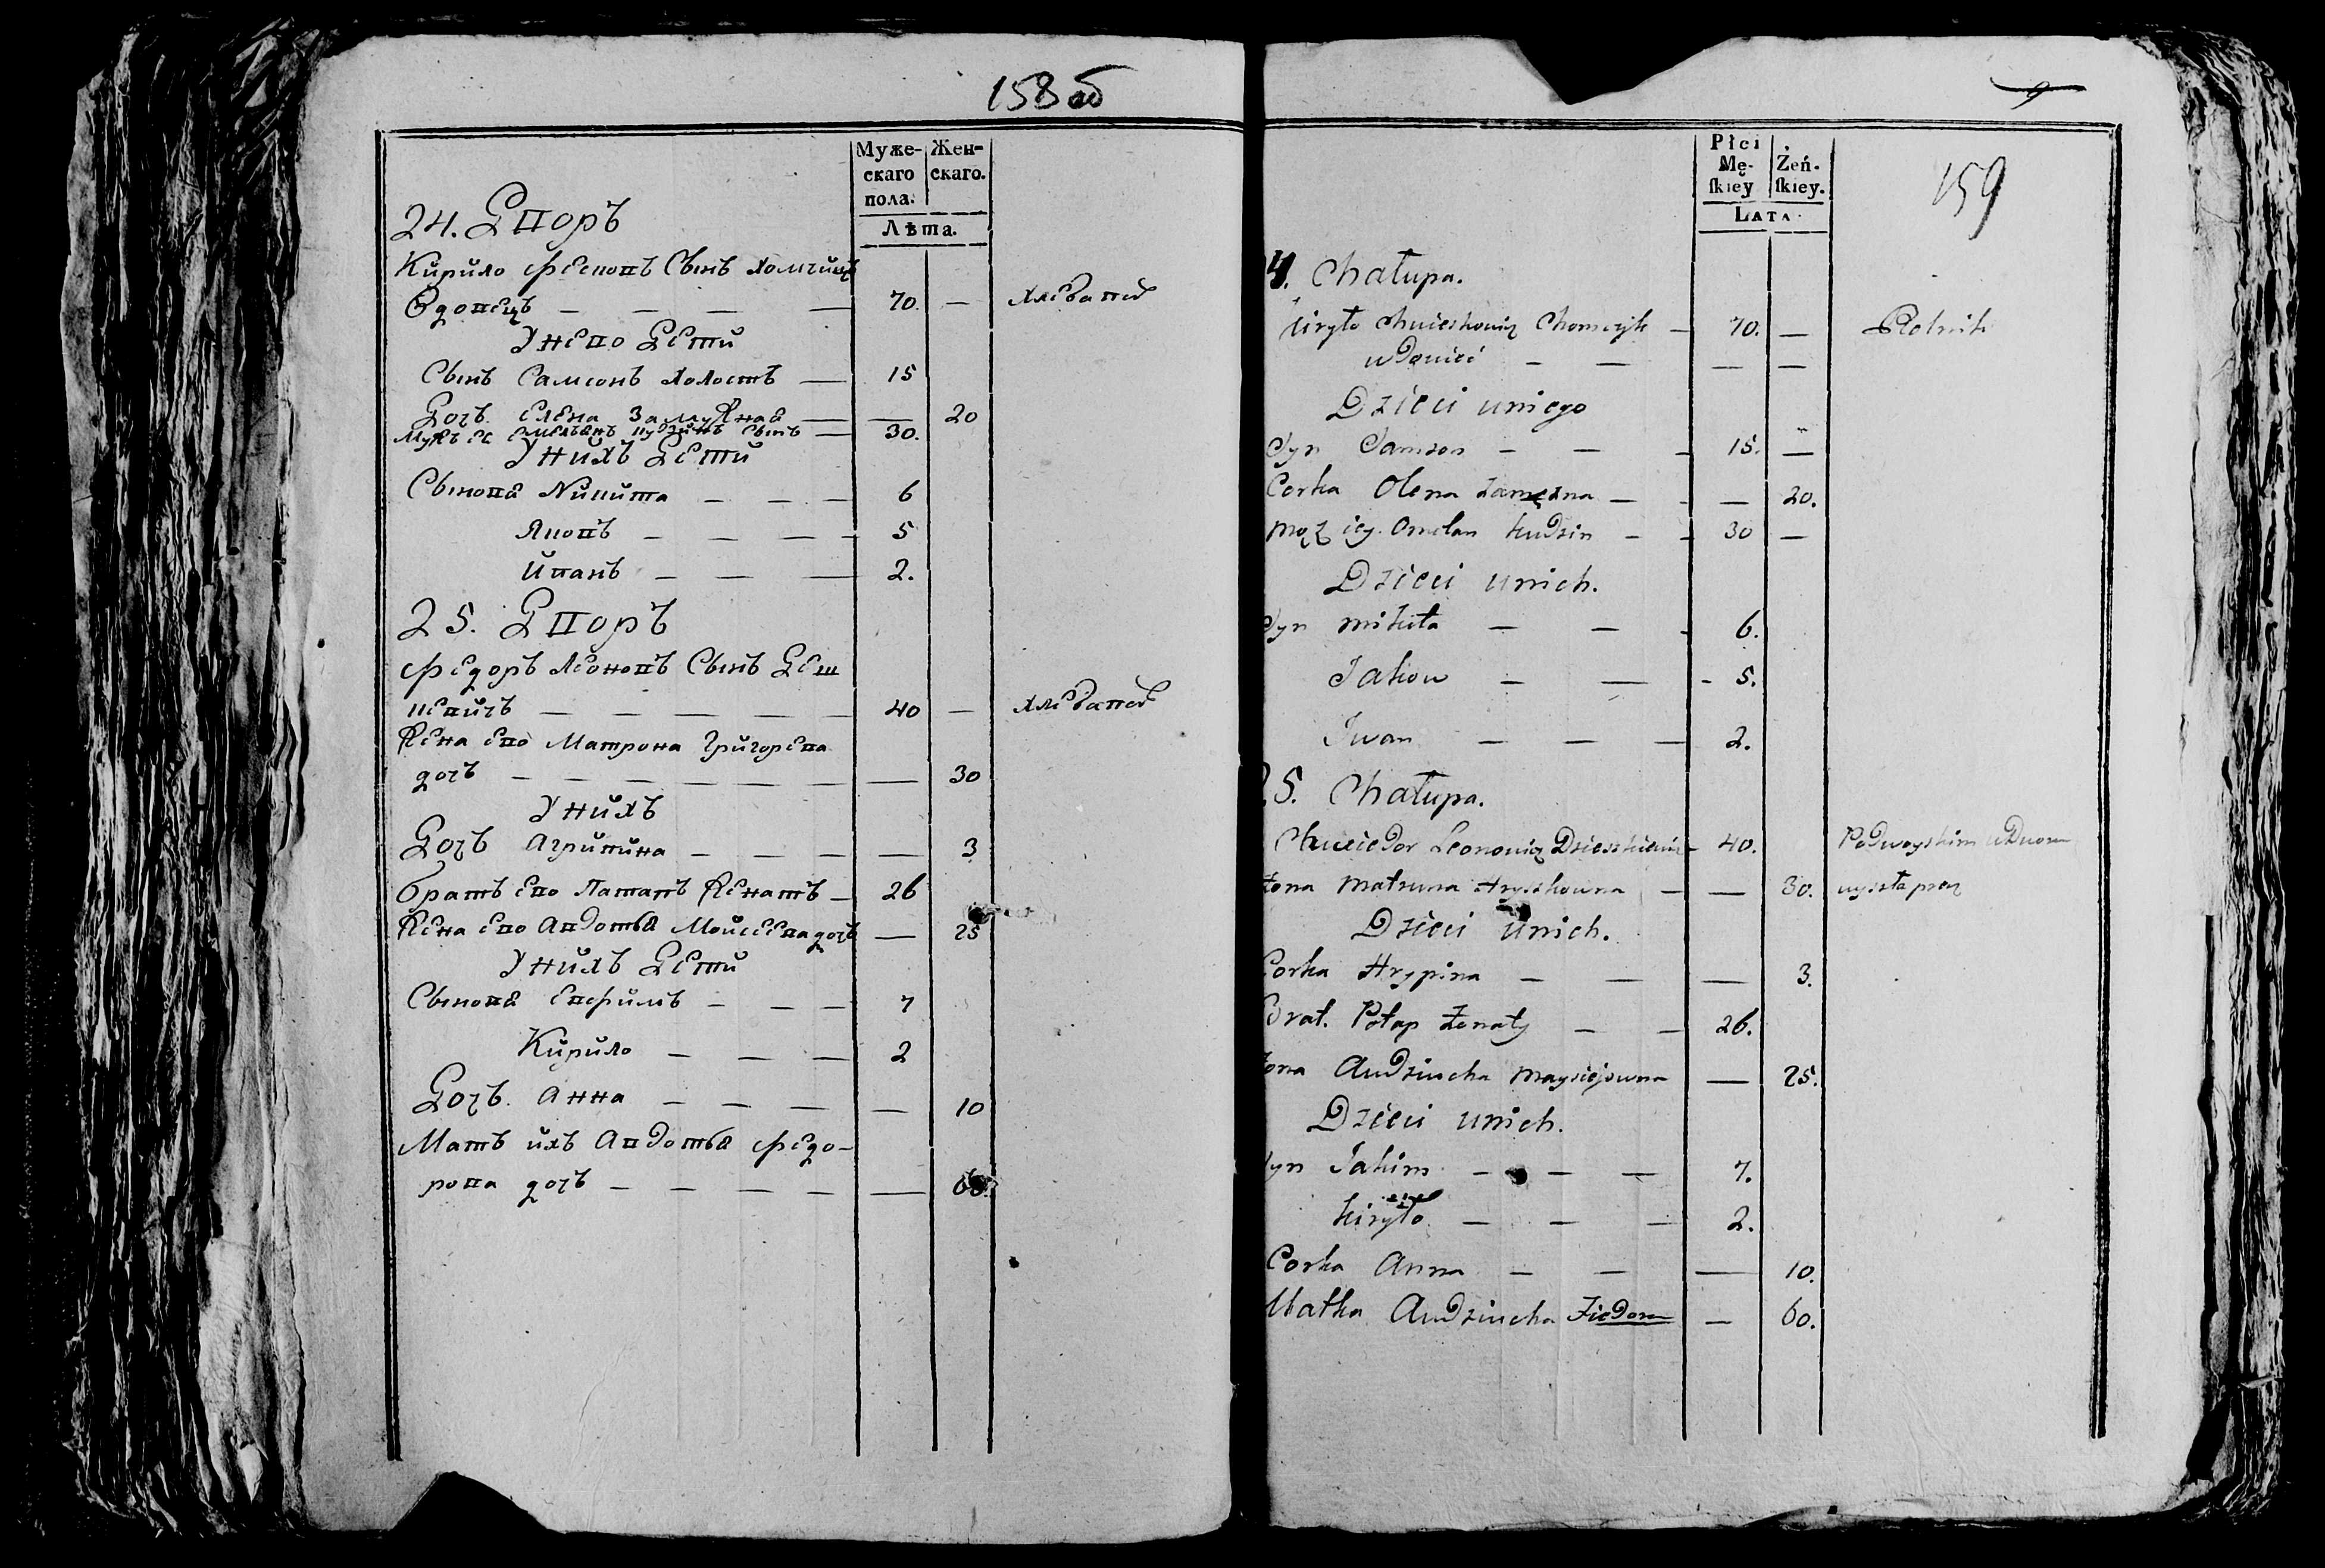 158 об
Муже-
скаго
пола.
Жен-
скаго.
Лѣта.
24. Дворъ
Кирило Фесковъ Сынъ Хомчикъ
Вдовецъ — — — — 70. — Хлебапаш
У него Дети
Сынъ Самсонъ Холостъ — 15
Дочь Елена Замужная — — 20
Мужъ ее Емельянъ Кудзинъ Сынъ — 30.
У нихъ Дети
Сыновя Никита — — — 6
Яковъ — — — — 5
Иванъ — — — 2.
25. Дворъ
Федоръ Леоновъ Сынъ Деш
кевичъ — — — — — 40 — Хлебапаш
Жена его Матрона Григорева
дочь — — — — — — — 30
У нихъ
Дочь Агрипина — — — — — 3
Братъ его Патапъ Женатъ — 26
Жена его Авдотья Моисеева дочь — 25
У нихъ Дети
Сыновя Евфимъ — — — 7
Кирило — — — 2
Дочь Анна — — — — 10
Мать ихъ Авдотья Федо-
рова дочь — — — — — 60.
9
159
Płci
Mę-
skiey
Żeń-
skiey.
Lata.
4. Chałupa.
Kiryło Chwieskowicz Chomczyk — 70. — Rolnik
wdowiec — — — —
Dzieci uniego
Syn Samson — — — 15. —
Corka Olena zamężna — — — 20.
Mąż iey Omelan Kudzin — — 30 —
Dzieci unich.
Syn Mikita — — - 6.
Jakow — — - 5.
Iwan — — — 2.
25. Chałupa.
Chwiedor Leonowicz Dzieszkiewicz - 40. Podwoyskim w Dworu
Zona Matruna Hryszkowna — — 30.
Dzieci unich.
Corka Hrypina — — — 3.
Brat. Potap Zonaty — — 26.
Zona Audziucha Maysiejowna — 25.
Dzieci unich.
Syn Jakim — — — 7.
Kiryło — — — 2.
Corka Anna — — — 10.
Matka Audziucha Fiedora — 60.